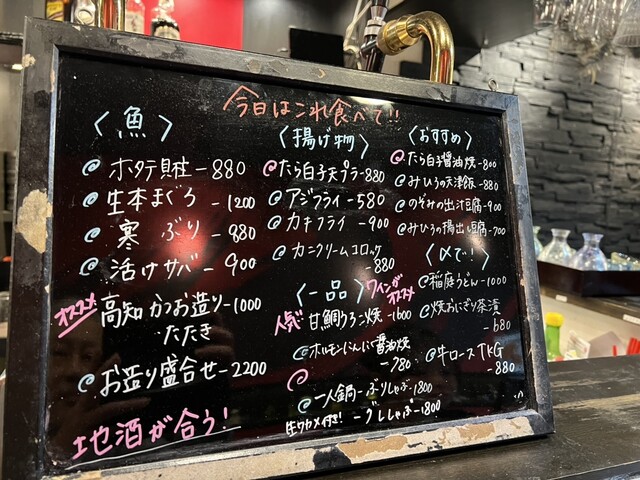 今日はこれ食べて!!
〈魚〉
@ホタテ貝柱-880
@生本まぐろ-1200
@寒ぶり-880
@活けサバ-900
オススメ 高知かつお造り-1000
たたき
@お造り盛合せ-2200
地酒が合う!
〈揚げ物〉
@たら白子天プラ-880
@アジフライ-580
@カキフライ-900
@カニクリームコロッケ
-880
〈一品〉
ワインがオススメ
人気! 甘鯛うろこ焼-1600
@ホルモンにんにく醤油焼
-780
@
@一人鍋-ぶりしゃぶ-1800
生ワカメ付き! -ブリしゃぶ-1800
〈おすすめ〉
@たら白子醤油焼-800
@みひろの天津飯-880
@のぞみの出汁豆腐-900
@みひろの揚出し豆腐-700
〈〆で!〉
@稲庭うどん-1000
@焼おにぎり茶漬
-680
@牛ロースTKG
-880